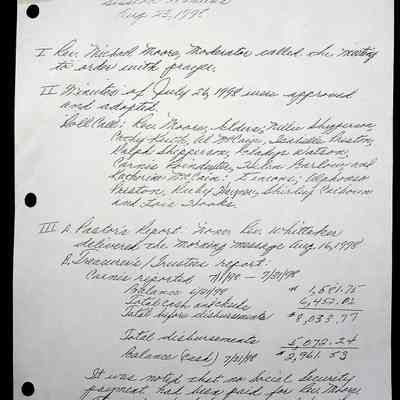 Session Minutes
Aug 23, 1998
I Rev. Michael Moore, Moderator called the meeting
to order with prayer.
II Minutes of July 26, 1998 were approved
and adopted.
Roll Call: Rev. Moore, Elders; Nellie Shepperson,
Preston,
Ralph Shepperson, Gladys Watson,
Carnis Poindexter, Helen Barlow and
Katherine McCain; Deacons; Alphonso
Preston, Ruby Haynes, Shirley Calhoun
and Lois Hooks.
III A. Pastor's Report: None. Rev. Whittaker
delivered the morning message Aug. 16, 1998
B. Treasurer's/Trustees report:
Carnis reported 7/1/98 - 7/31/98
Balance 6/31/98 $ 1,581.75
Total Cash and checks 6,452.02
Total before disbursements $8,033.77
Total disbursements 5,072.24
Balance (Cash) 7/31/98 $2,961.53
It was noted that no Social Security
payment had been paid for Rev. Moore